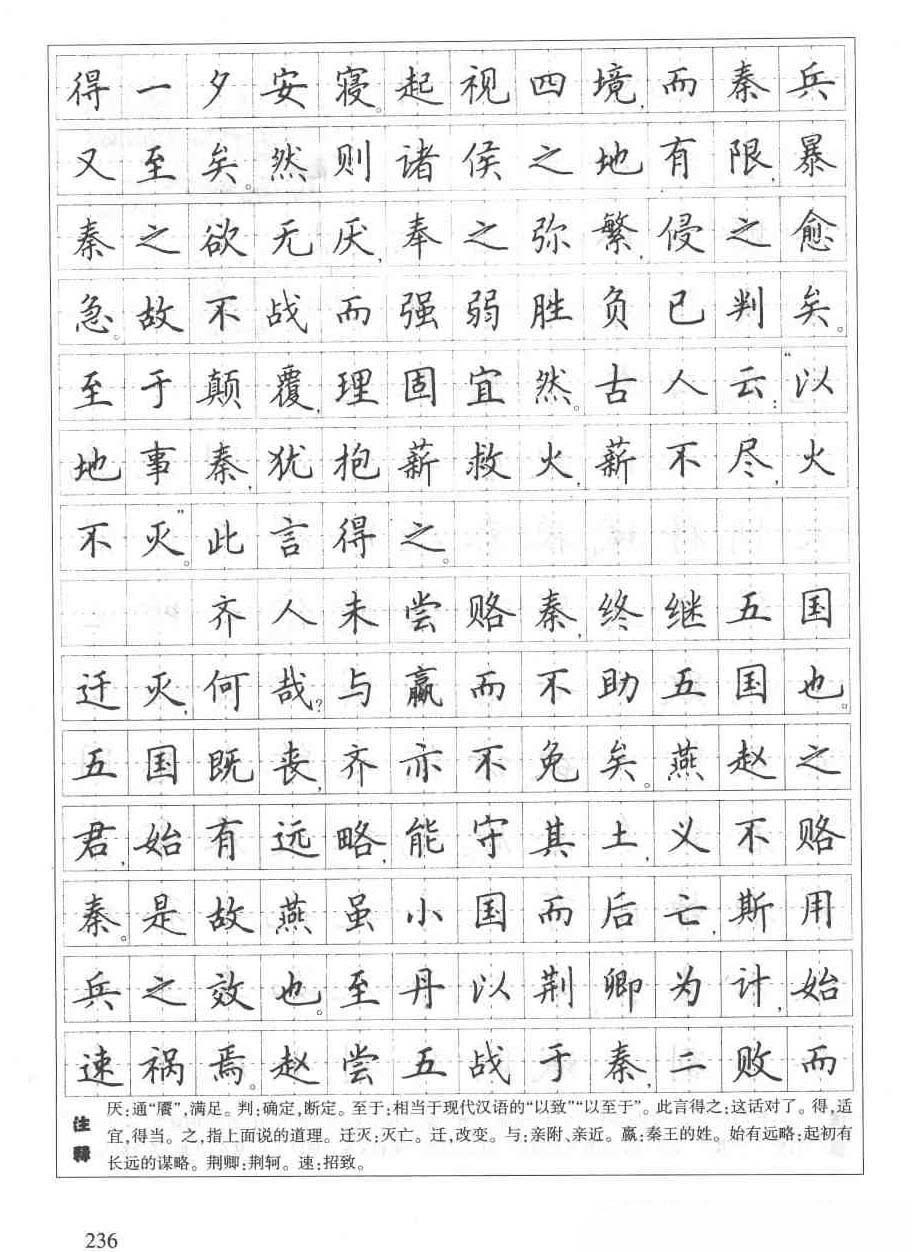 得一夕安寝。起视四境,而秦兵
又至矣。然则诸侯之地有限,暴
秦之欲无厌,奉之弥繁,侵之愈
急。故不战而强弱胜负已判矣。
至于颠覆,理固宜然。古人云:“以
地事秦,犹抱薪救火,薪不尽,火
不灭。”此言得之。
齐人未尝赂秦,终继五国
迁灭,何哉?与嬴而不助五国也。
五国既丧,齐亦不免矣。燕赵之
君,始有远略,能守其土,义不赂
秦。是故燕虽小国而后亡,斯用
兵之效也。至丹以荆卿为计,始
速祸焉。赵尝五战于秦,二败而
注释
厌:通“餍”,满足。判:确定,断定。至于:相当于现代汉语的“以致”“以至于”。此言得之:这话对了。得,适
宜,得当。之,指上面说的道理。迁灭:灭亡。迁,改变。与:亲附、亲近。嬴:秦王的姓。始有远略:起初有
长远的谋略。荆卿:荆轲。速:招致。
236